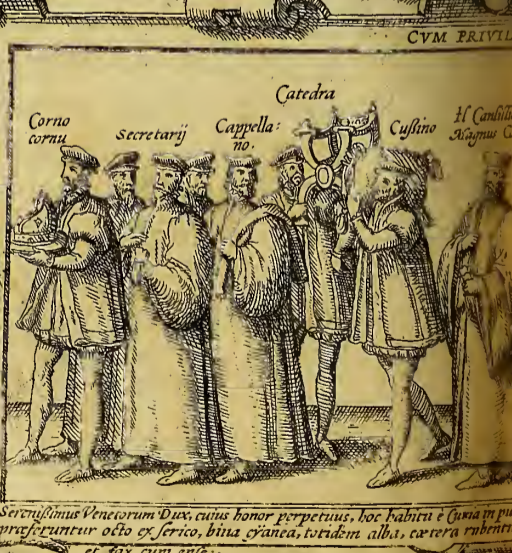 CVM PRIVIL
Catedra
Corno
cornu
Secretarij
Cappella:
no.
Cussino
Il Cansilli
Magnus C
Serenissimus Venetorum Dux, cuius honor perpetuus, hoc habitu è Curia in pu
præferuntur octo ex serico, bina cyanea, totidem alba, cætera rubenti
et fax cum ense